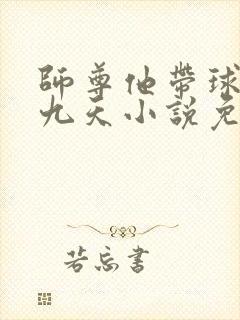 師尊他帶球
九天小說免
若忘書